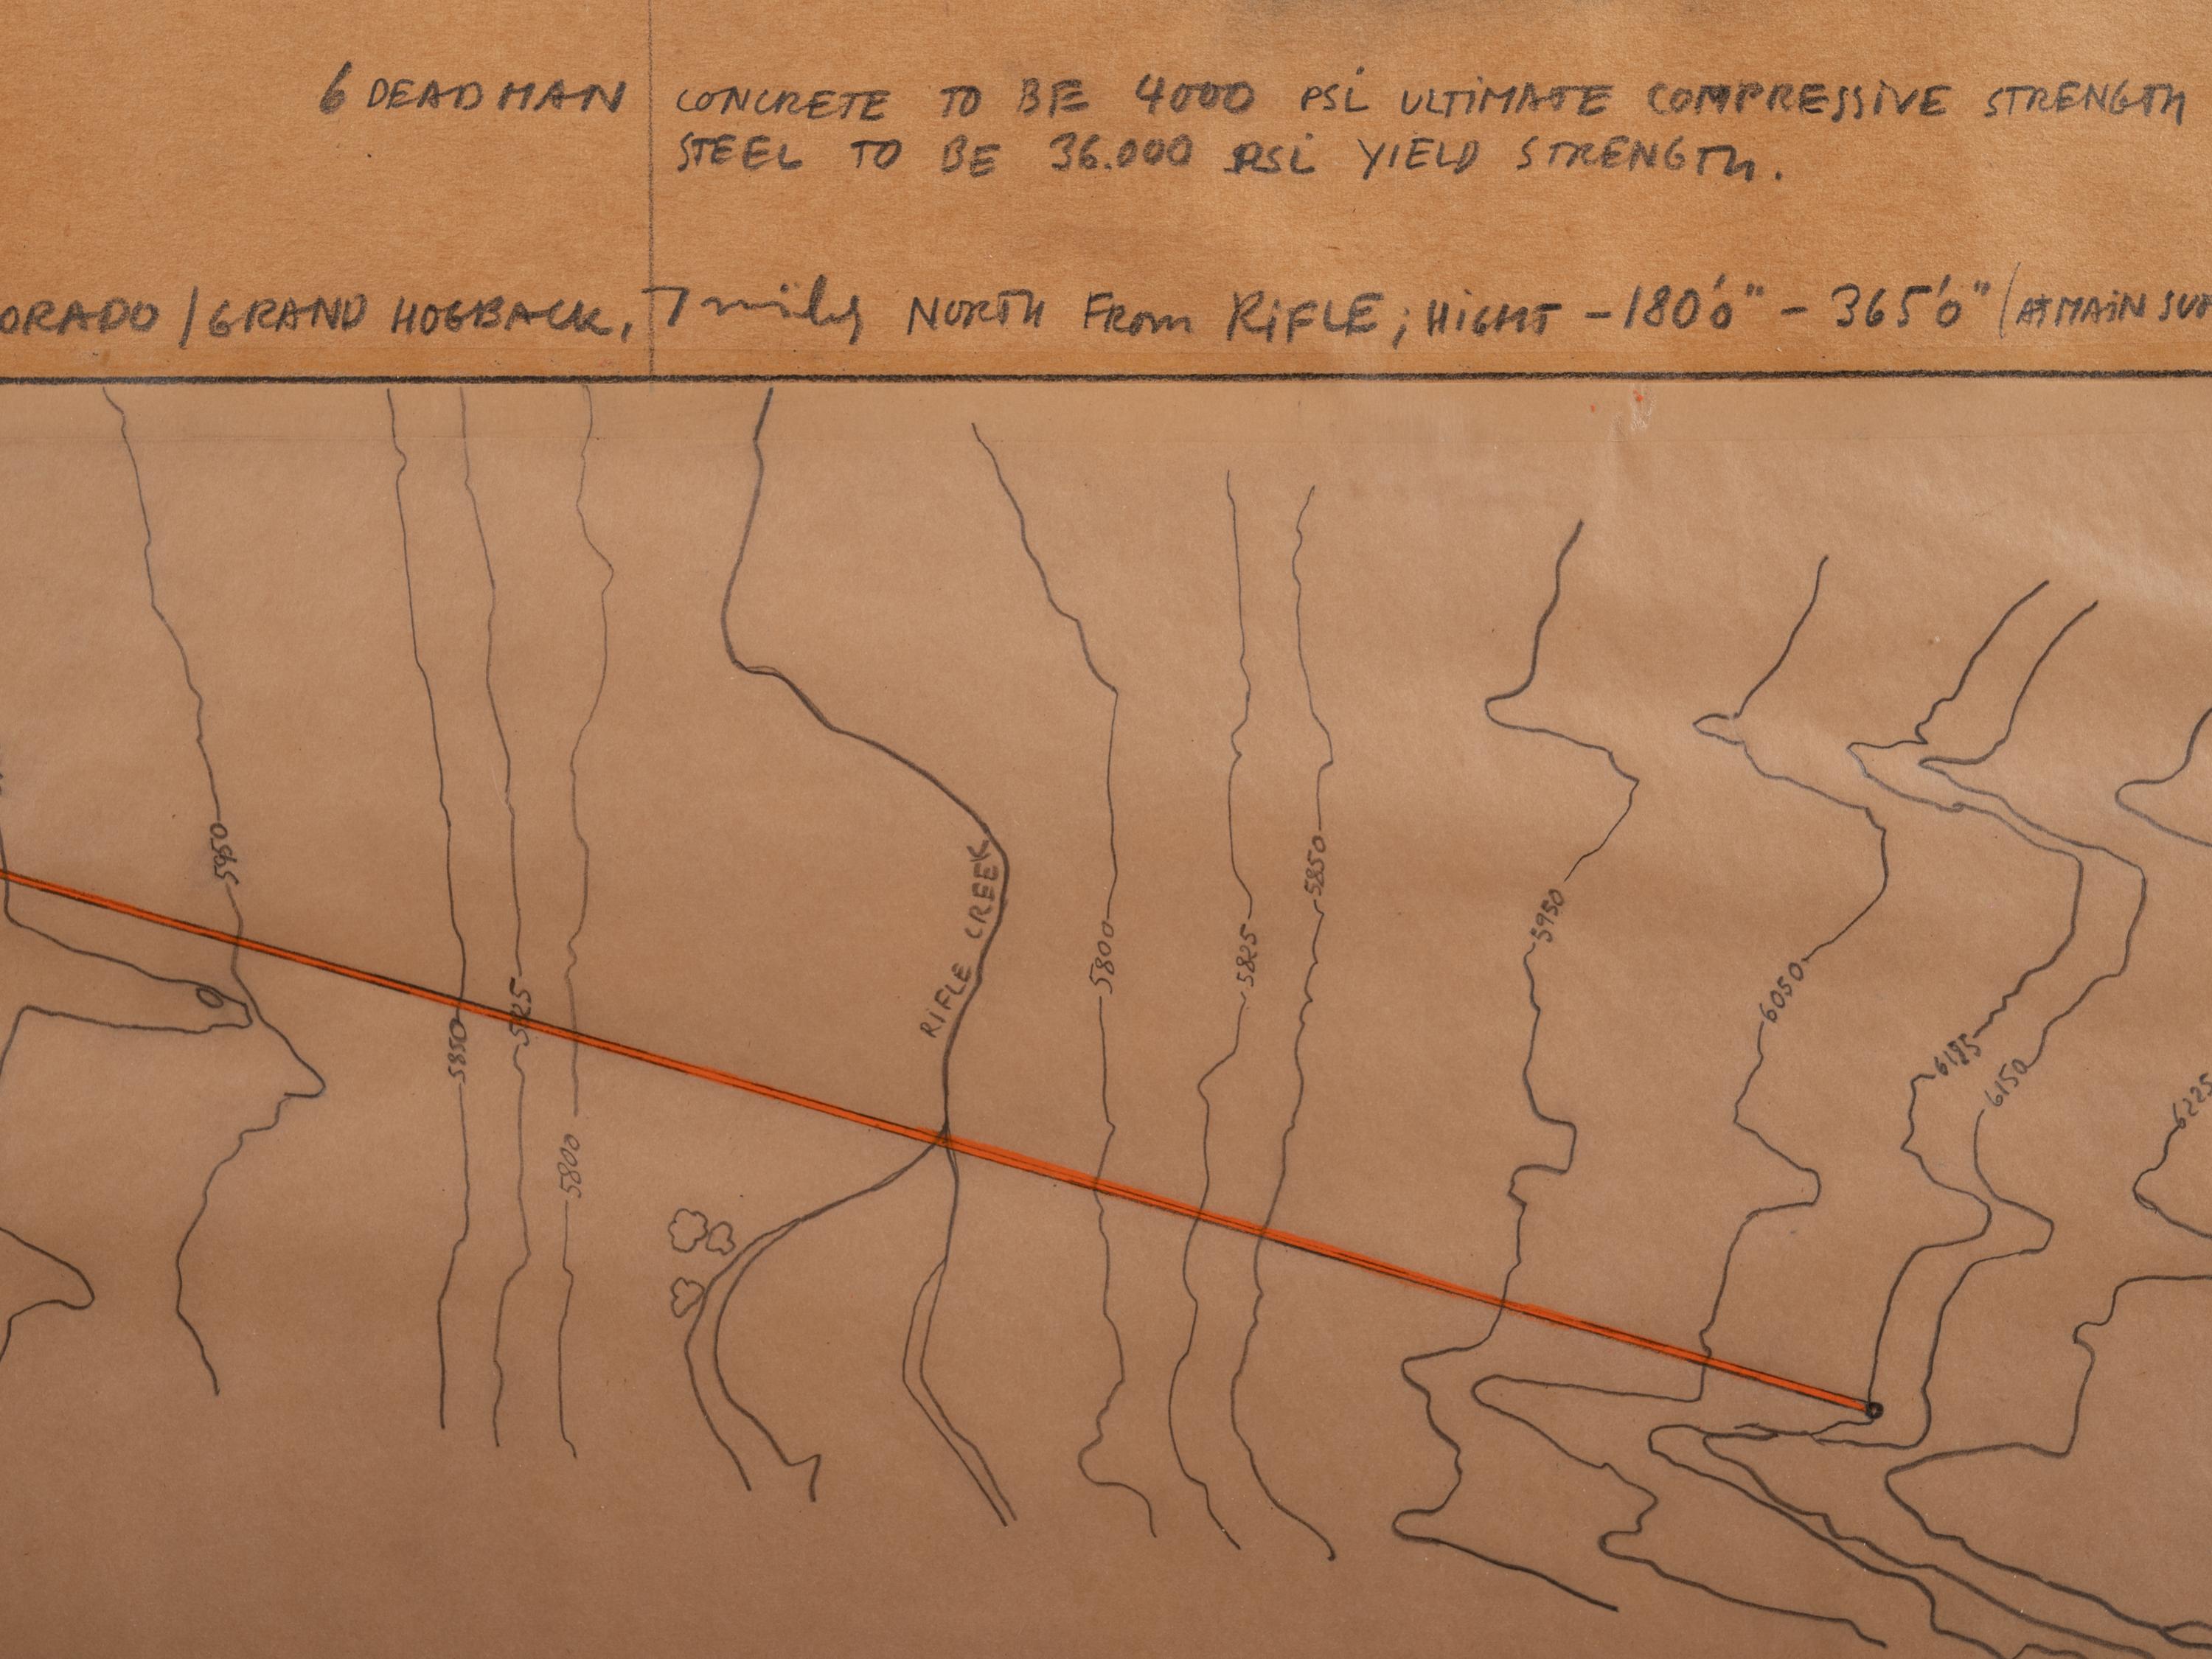 6 DEADMAN
CONCRETE TO BE 4000 PSi ULTiMATE COMPRESSiVE STRENGTH
STEEL TO BE 36.000 PSi YiELD STRENGTH.
ORADO / GRAND HOGBACK, 7 miles NORTH FROM RiFLE; HIGHT -180'0" - 365'0" (AT MAiN SUP
5950
5850
5825
5800
RIFLE CREEK
5800
5825
5850
5950
6050
6125
6150
6225